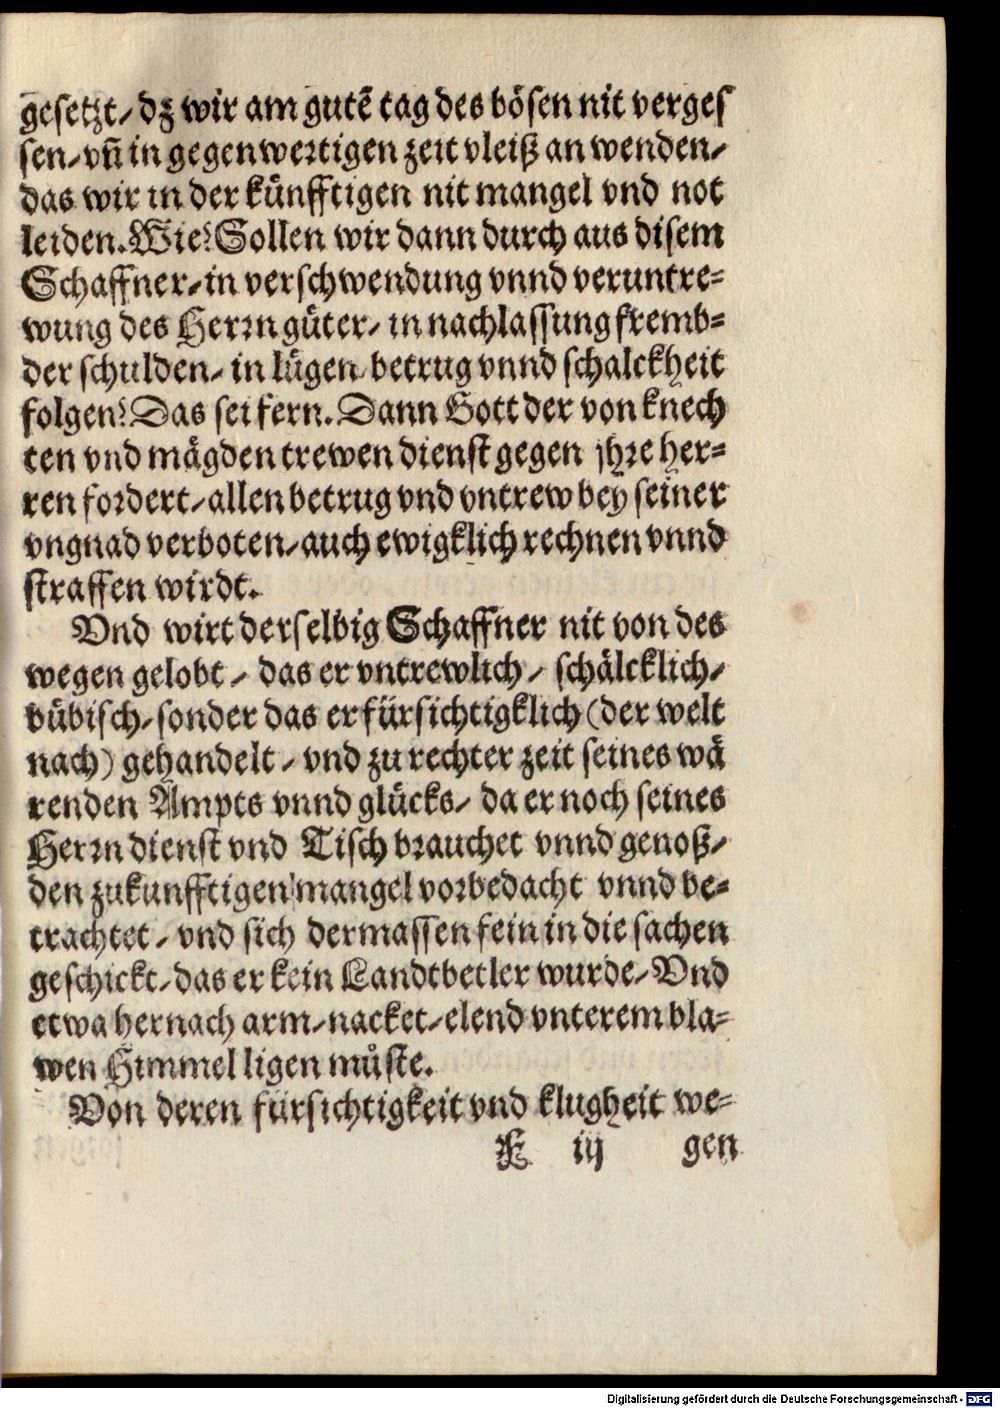 gesetzt / dz wir am gutẽ tag des bösen nit verges
sen / vñ in gegenwertigen zeit vleiß an wenden /
das wir in der künfftigen nit mangel vnd not
leiden. Wie? Sollen wir dann durch aus disem
Schaffner / in verschwendung vnnd veruntre=
wung des Herrn güter / in nachlassung fremb=
der schulden / in lügen / betrug vnnd schalckheit
folgen? Das sei fern. Dann Gott der von knech
ten vnd mägden trewen dienst gegen jhre her=
ren fordert / allen betrug vnd vntrew bey seiner
vngnad verboten / auch ewigklich rechnen vnnd
straffen wirdt.
Vnd wirt derselbig Schaffner nit von des
wegen gelobt / das er vntrewlich / schälcklich /
bübisch / sonder das er fürsichtigklich (der welt
nach) gehandelt / vnd zu rechter zeit seines wä
renden Ampts vnnd glücks / da er noch seines
Herrn dienst vnd Tisch brauchet vnnd genoß /
den zukunfftigen mangel vorbedacht vnnd be=
trachtet / vnd sich dermassen fein in die sachen
geschickt / das er kein Landtbetler wurde / Vnd
etwa hernach arm / nacket / elend vnterem bla=
wen Himmel ligen müste.
Von deren fürsichtigkeit vnd klugheit we=
E iij gen
Digitalisierung gefördert durch die Deutsche Forschungsgemeinschaft - DFG